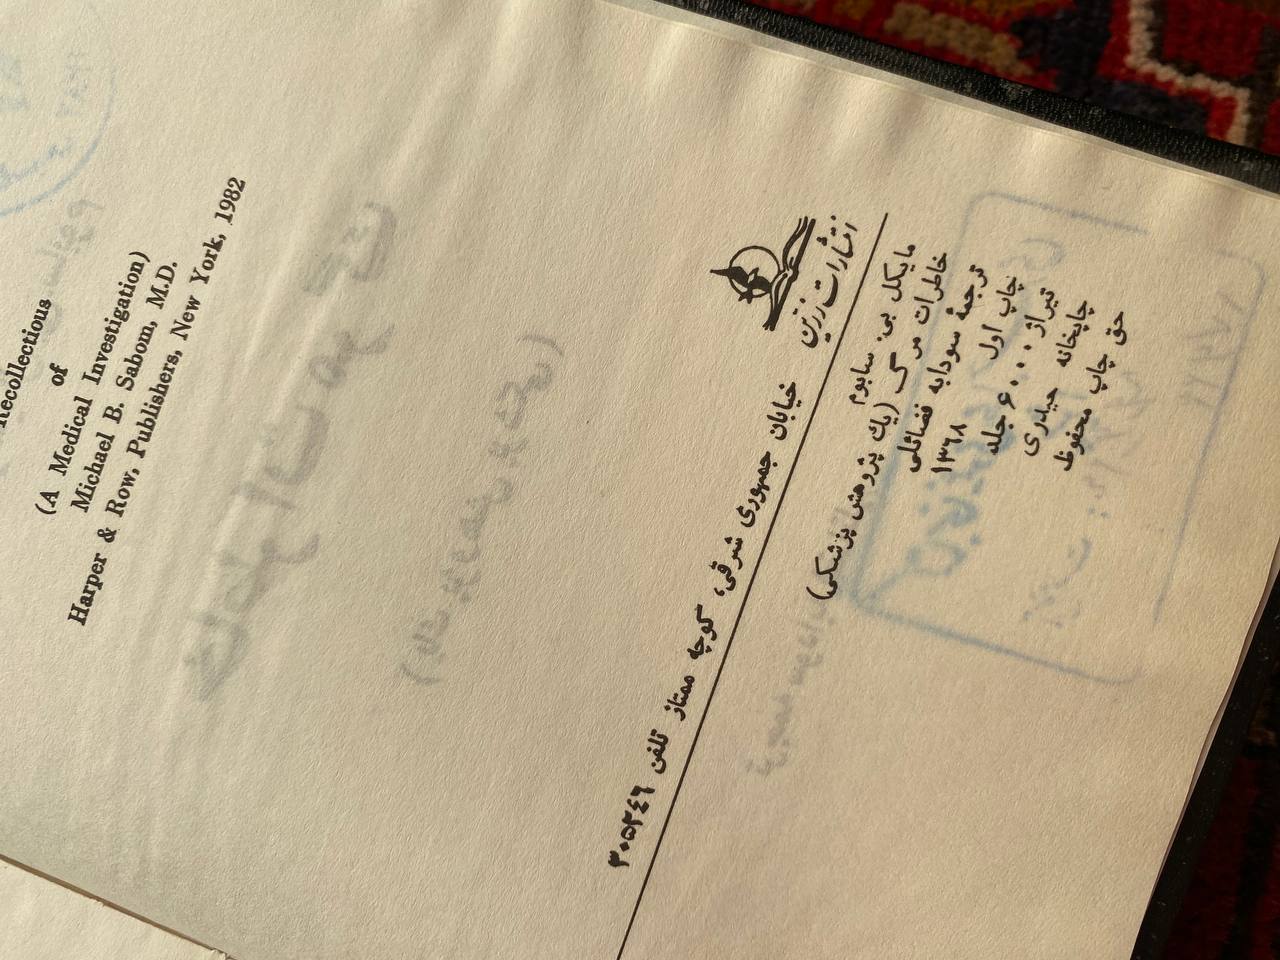 Recollectious
of
(A Medical Investigation)
Michael B. Sabom, M.D.
Harper & Row, Publishers, New York, 1982
انتشارات زرین
خیابان جمهوری شرقی، کوچه ممتاز تلفن ۳۰۵۳٤٦
مایکل بی. سابوم
خاطرات مرگ (یك پژوهش پزشکی)
ترجمهٔ سودابه فضائلی
چاپ اول ۱۳۶۸
تیراژ ۶۰۰۰ جلد
چاپخانه حیدری
حق چاپ محفوظ